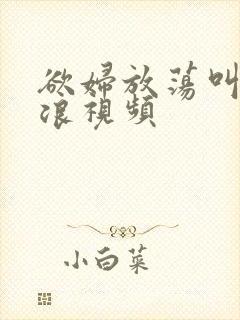 欲婦放蕩叫
浪視頻
小白菜